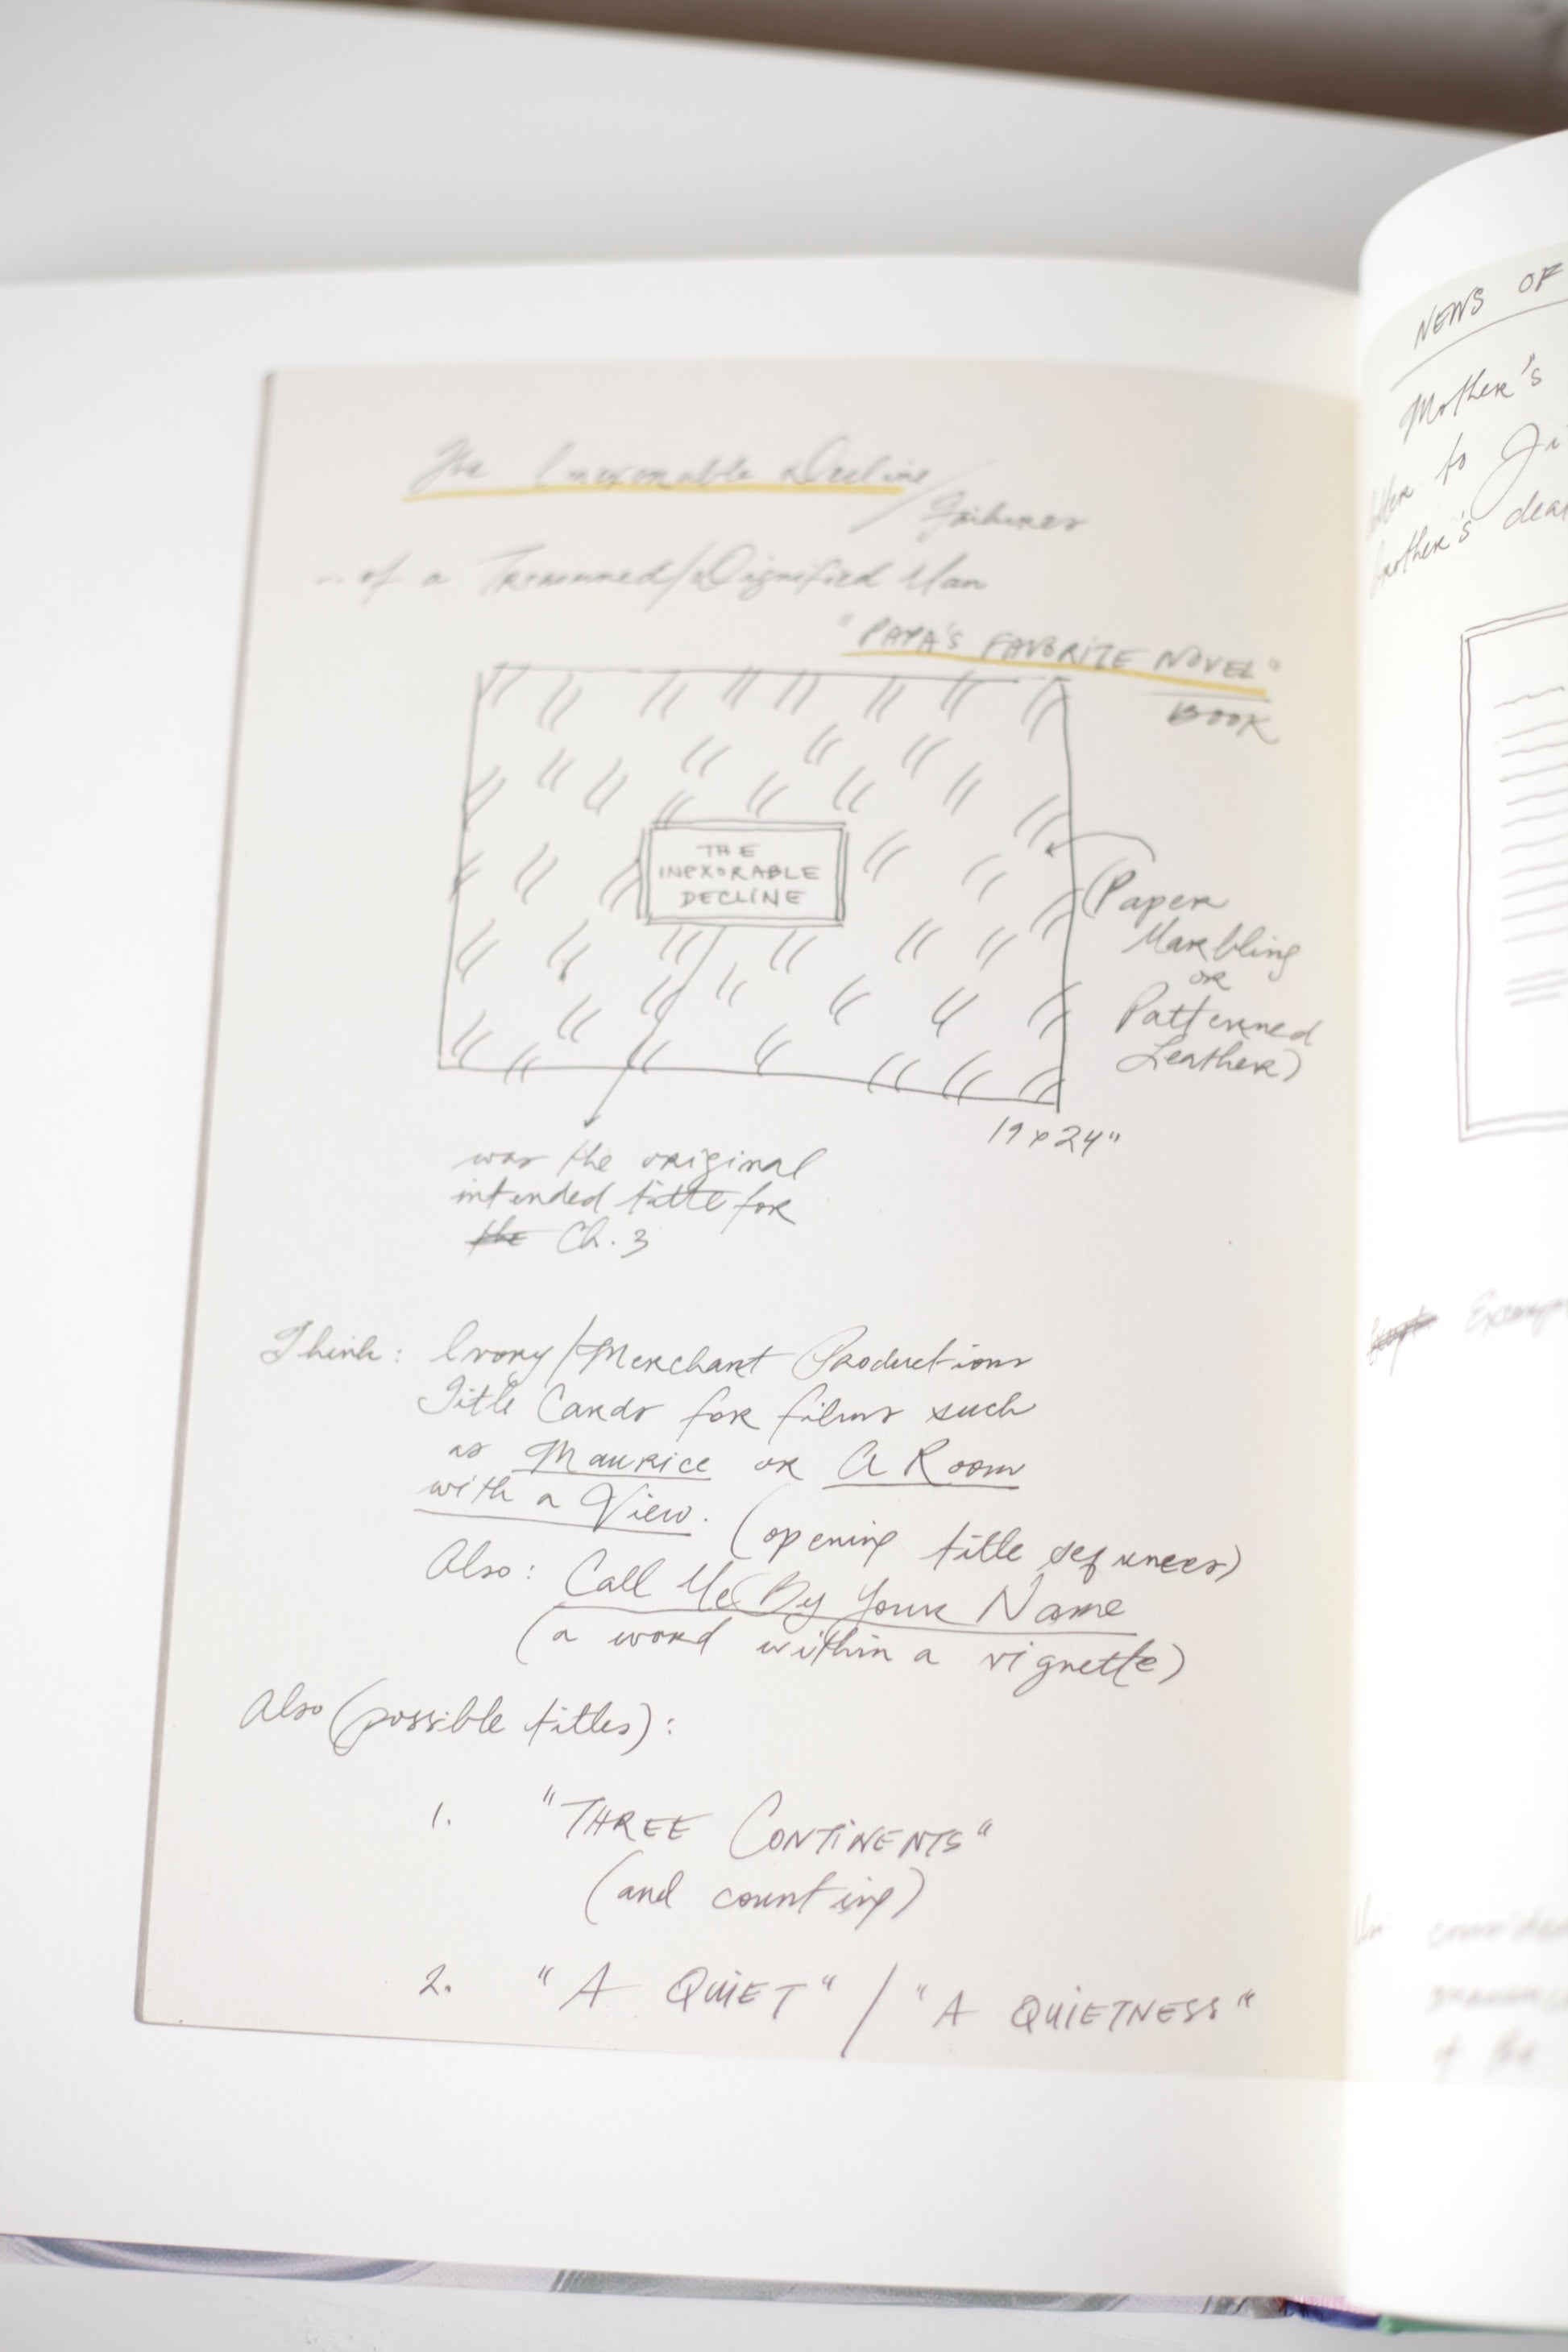 The Inexorable Decline/
Failures
... of a /Dignified Man
"PAPA'S FAVORITE NOVEL"
BOOK
THE
INEXORABLE
DECLINE
(Paper
Marbling
or
Patterned
Leather)
19 x 24"
was the original
intended title for
the Ch. 3
Think: Ivory/Merchant Productions
Title Cards for films such
as Maurice or A Room
with a View. (opening title sequences)
Also: Call Me By Your Name
(a word within a vignette)
Also (possible titles):
1. "THREE CONTINENTS"
(and counting)
2. "A QUIET" / "A QUIETNESS"
NEWS OF
Mother's
to
dea
of the